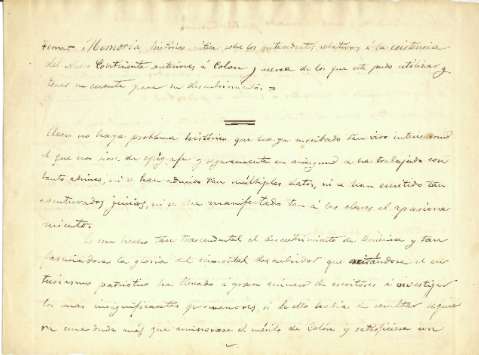 Tema = Memoria histórico crítica sobre los antecedentes relativos á la existencia
del Nuevo Continente anteriores á Colon y acerca de los que este pudo utilizar y
tener en cuenta para su descubrimiento. =
Acaso no haya problema histórico que haya inspirado tan vivo interes como
el que nos sirve de epígrafe y seguramente en ninguno se ha trabajado con
tanto ahinco, ni se han aducido tan múltiples datos, ni se han emitido tan
aventurados juicios, ni se ha manifestado tan á las claras el apasiona
miento.
Es un hecho tan trascendental el descubrimiento de América y tan
fascinadora la gloria del inmortal descubridor que el en
tusiasmo patriótico ha llevado a gran número de escritores á investigar
los mas insignificantes pormenores, si de ello habia de resultar siquie
ra una duda más que aminorase el mérito de Colón y satisficiera un